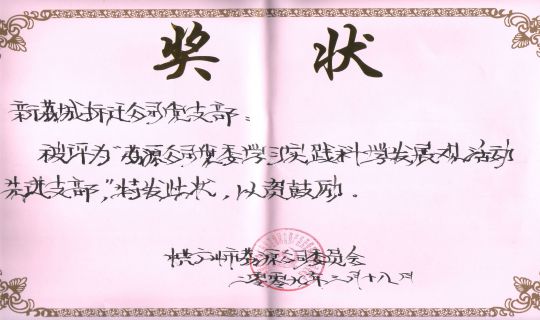 奖状
新荔城拆迁公司党支部：
被评为"荔源公司党委学习实践科学发展观活动
先进支部，"特发此状，以资鼓励。
荔源公司委员会
二零零九年二月十八日